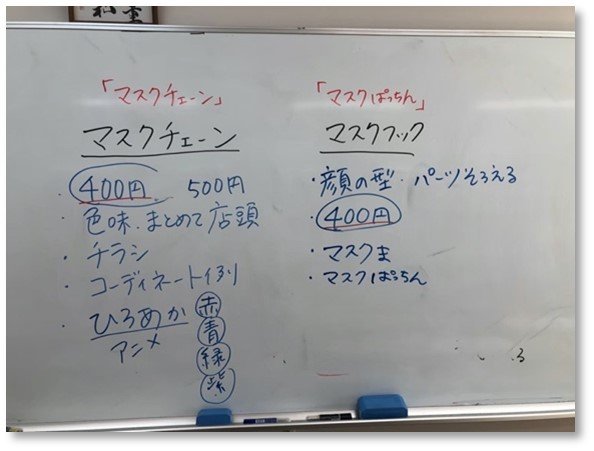 「マスクチェーン」
マスクチェーン
400円 500円
・色味.まとめて店頭
・チラシ
・コーディネート例
・ひろめか
アニメ
赤
青
緑
紫
「マスクぱっちん」
マスクフック
・顔の型.パーツそろえる
・400円
・マスクま
・マスクぱっちん